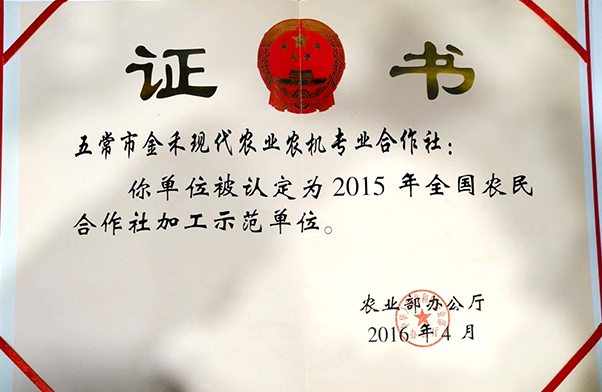 证书
五常市金禾现代农业农机专业合作社：
你单位被认定为2015年全国农民
合作社加工示范单位。
农业部办公厅
2016年4月